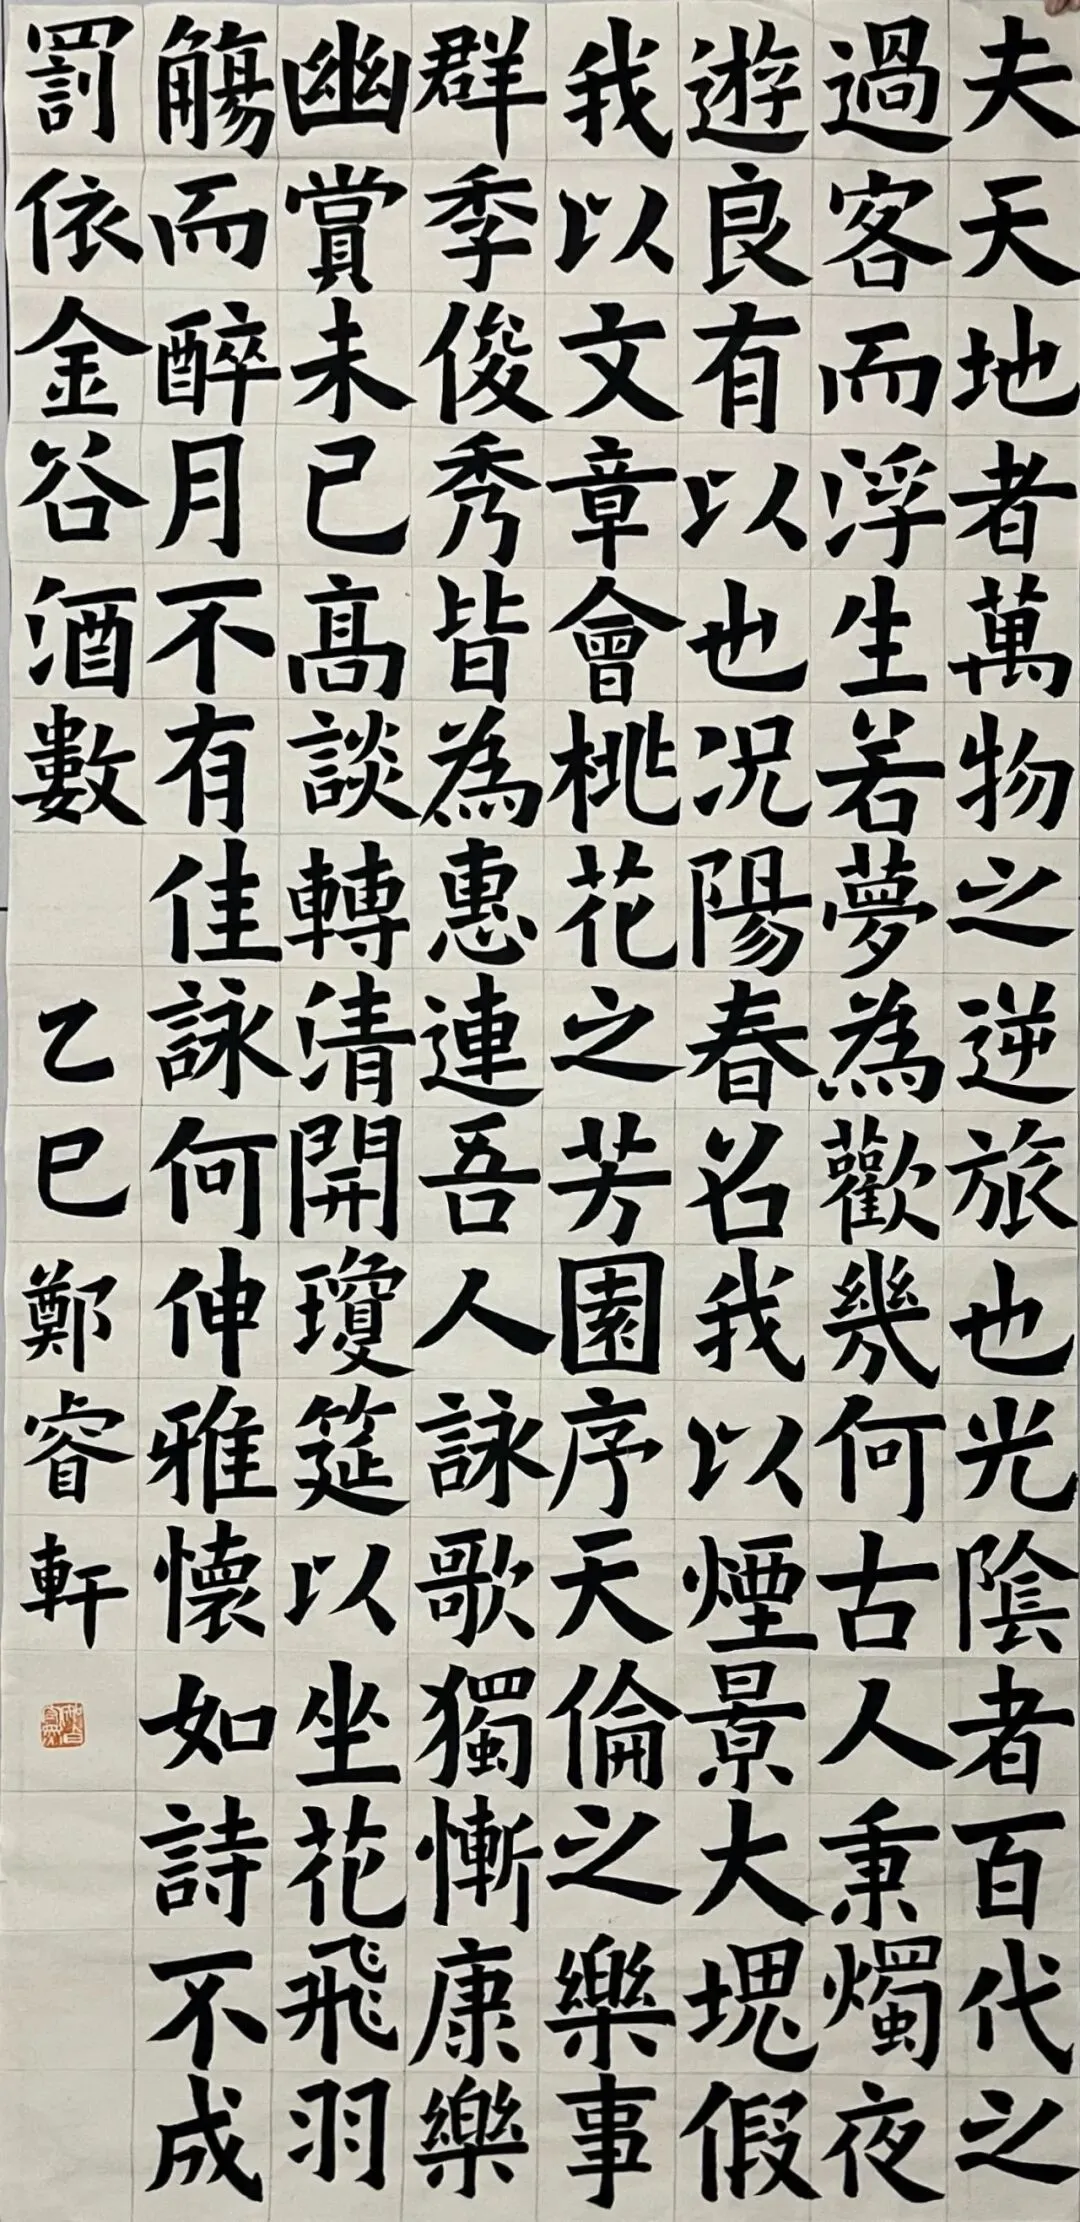 夫天地者萬物之逆旅也光陰者百代之
過客而浮生若夢為歡幾何古人秉燭夜
遊良有以也況陽春名我以煙景大塊假
我以文章會桃花之芳園序天倫之樂事
群季俊秀皆為惠連吾人詠歌獨慚康樂
幽賞未已高談轉清開瓊筵以坐花飛羽
觴而醉月不有佳詠何伸雅懷如詩不成
罰依金谷酒數
乙巳鄭睿軒